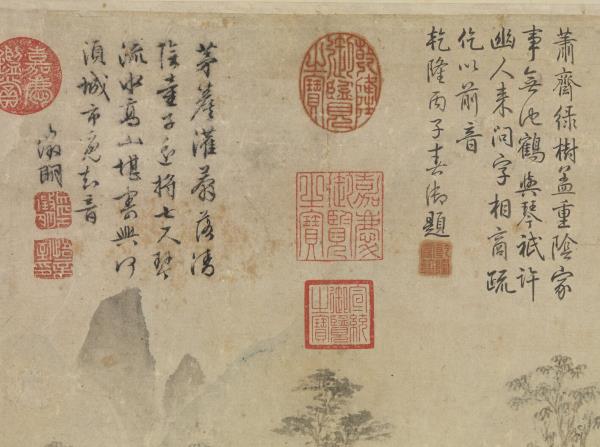 蕭齋綠樹蓋重陰家
事無他鶴與琴祇許
幽人來問字相商疏
仡以前音
乾隆丙子春御題
乾隆御覽之寶
嘉慶御覽之寶
宣統御覽之寶
茅簷灌莽落清
陰童子遠將七尺琴
流水高山堪寄興何
須城市覓知音
徵明
嘉慶鑑賞